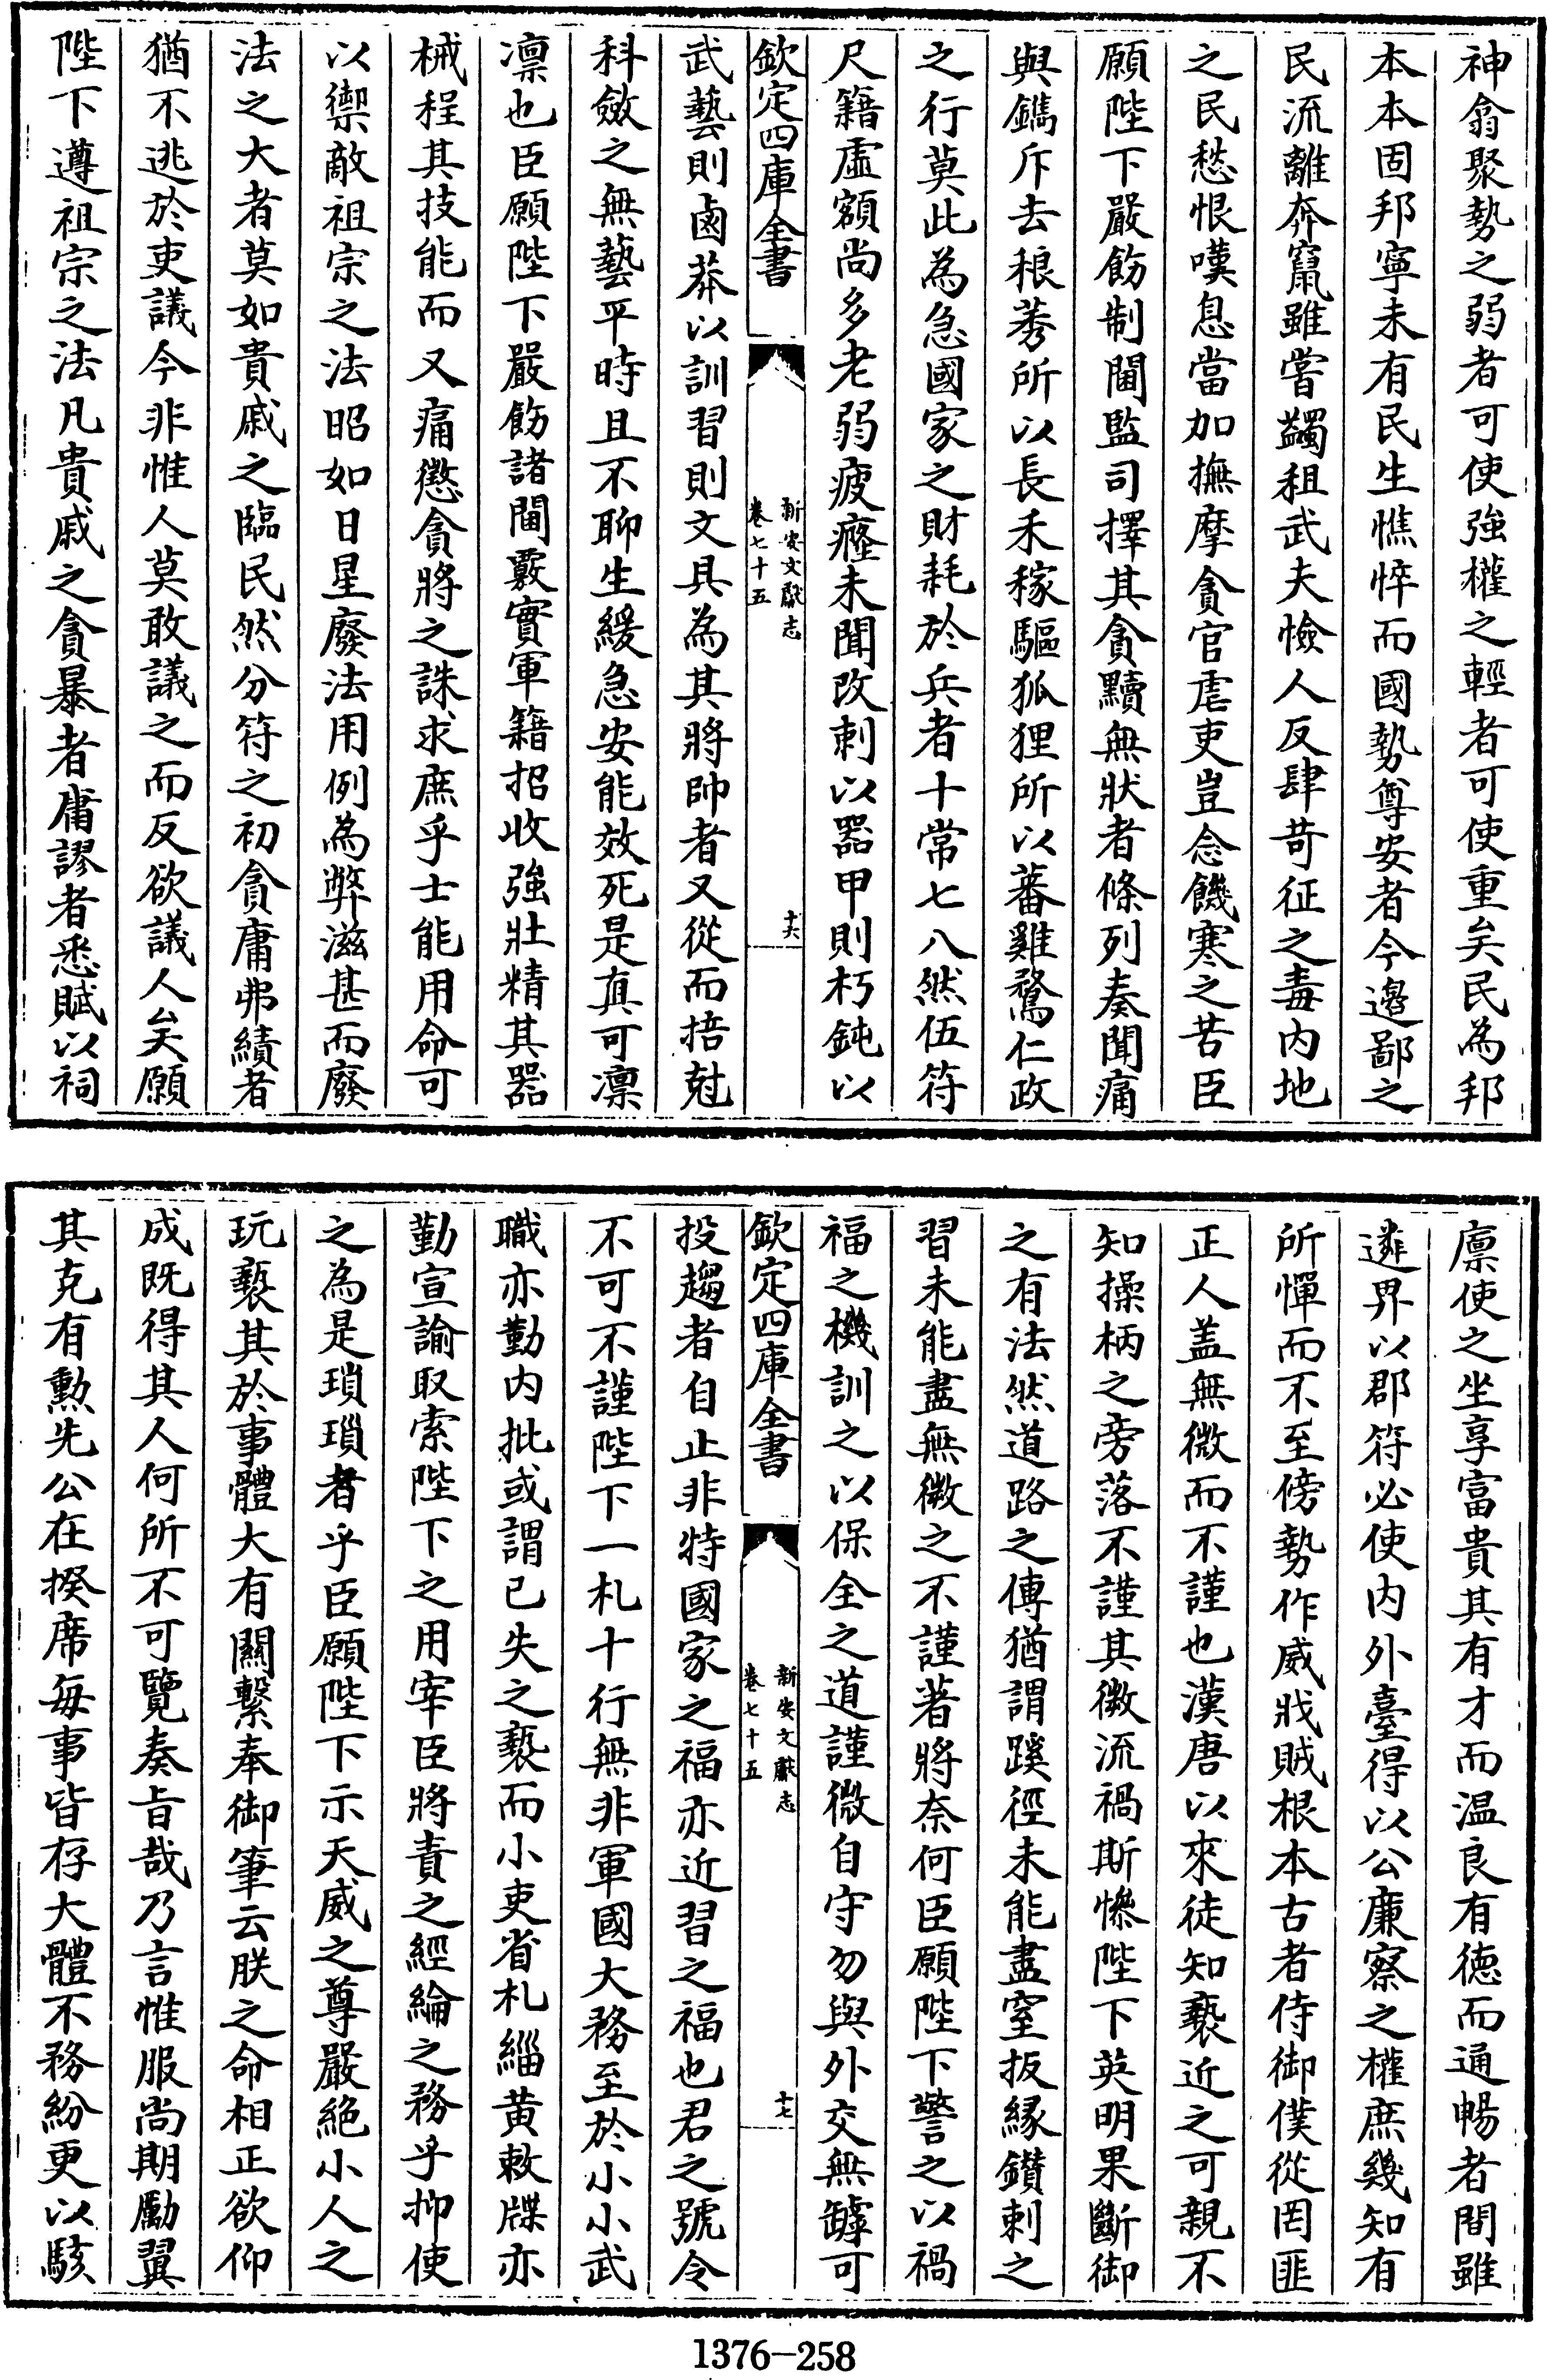 神翕聚勢之弱者可使強權之輕者可使重矣民為邦
本本固邦寧未有民生憔悴而國勢尊安者今邊鄙之
民流離奔竄雖嘗蠲租武夫憸人反肆苛征之毒内地
之民愁恨嘆息當加撫摩貪官虐吏豈念饑寒之苦臣
願陛下嚴飭制閫監司擇其貪黷無狀者條列奏聞痛
與鐫斥去稂莠所以長禾稼驅狐狸所以蕃雞鶩仁政
之行莫此為急國家之財耗於兵者十常七八然伍符
尺籍虛額尚多老弱疲癃未聞改刺以器甲則朽鈍以
欽定四庫全書
新安文獻志
卷七十五
十六
武藝則鹵莽以訓習則文具為其將帥者又從而掊尅
科斂之無藝平時且不聊生緩急安能效死是真可凛
凛也臣願陛下嚴飭諸閫覈實軍籍招收強壯精其器
械程其技能而又痛懲貪將之誅求庶乎士能用命可
以禦敵祖宗之法昭如日星廢法用例為弊滋甚而廢
法之大者莫如貴戚之臨民然分符之初貪庸弗績者
猶不逃於吏議今非惟人莫敢議之而反欲議人矣願
陛下遵祖宗之法凡貴戚之貪暴者庸謬者悉賦以祠
廪使之坐享富貴其有才而温良有徳而通暢者間雖
遴畀以郡符必使内外臺得以公廉察之權庶幾知有
所憚而不至傍勢作威戕賊根本古者侍御僕從罔匪
正人盖無微而不謹也漢唐以來徒知褻近之可親不
知操柄之旁落不謹其微流禍斯慘陛下英明果斷御
之有法然道路之傳猶謂蹊徑未能盡窒扳縁鑽刺之
習未能盡無微之不謹著將奈何臣願陛下警之以禍
福之機訓之以保全之道謹微自守勿與外交無罅可
欽定四庫全書
新安文獻志
卷七十五
十七
投趨者自止非特國家之福亦近習之福也君之號令
不可不謹陛下一札十行無非軍國大務至於小小武
職亦勤内批或謂已失之褻而小吏省札緇黄敕牒亦
勤宣諭取索陛下之用宰臣將責之經綸之務乎抑使
之為是瑣瑣者乎臣願陛下示天威之尊嚴絶小人之
玩褻其於事體大有關繫奉御筆云朕之命相正欲仰
成既得其人何所不可覽奏旨哉乃言惟服尚期勵翼
其克有勲先公在揆席毎事皆存大體不務紛更以駭
1376-258